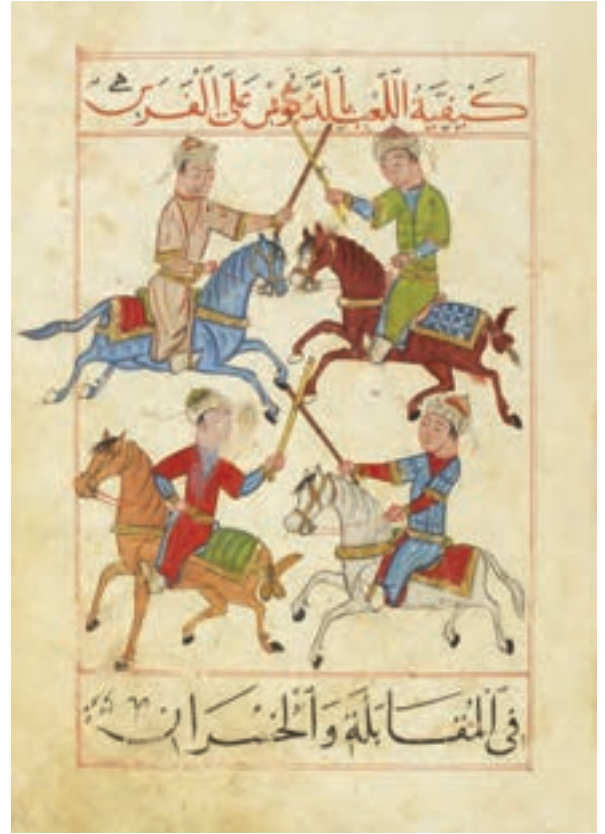 كَيْفِيَّةُ اللَّعْبِ بِالدَّبُّوسِ عَلَى الْفَرَسِ
فِي الْمُقَابَلَةِ وَالْخُسْرَانِ